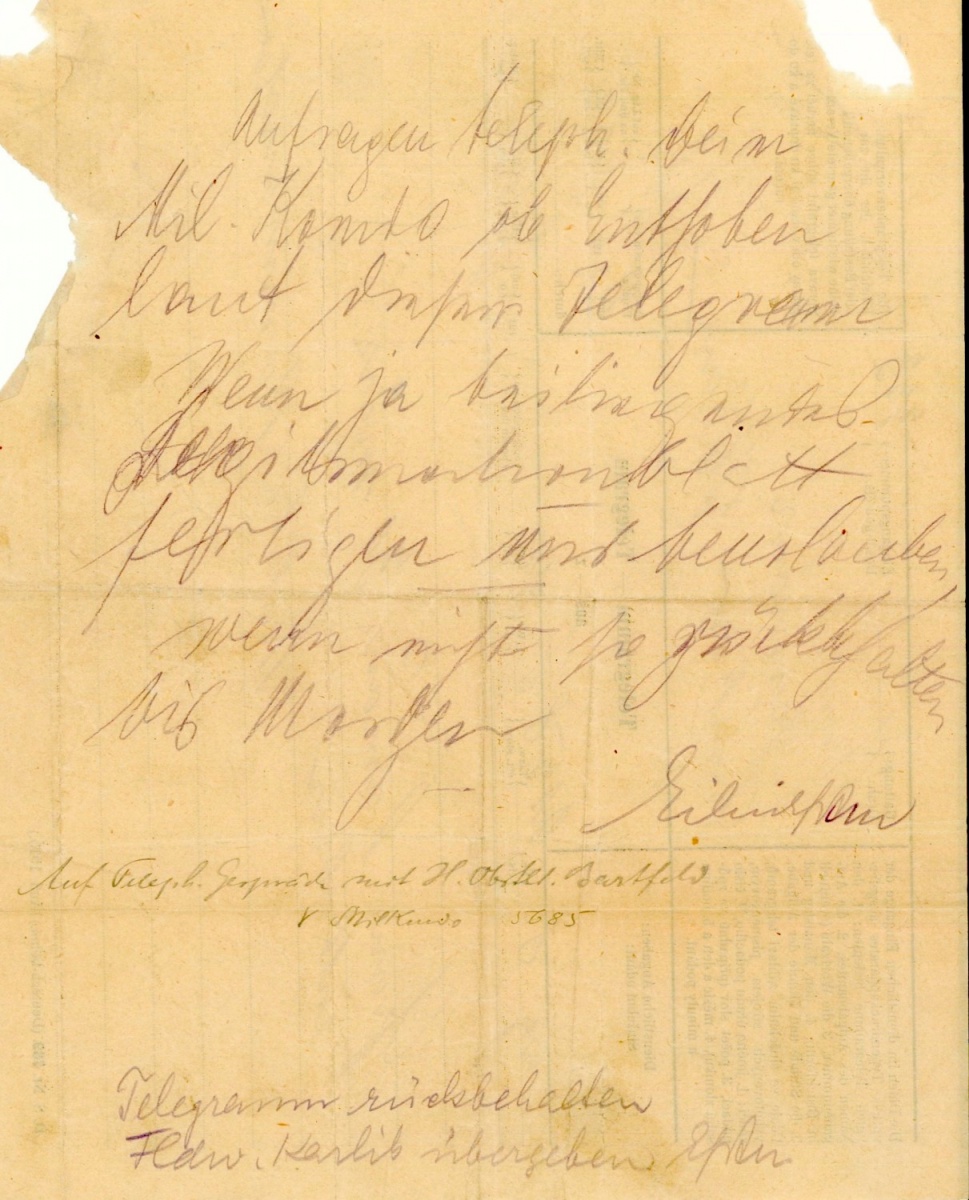 Anfragen teleph. beim
Mil. Komdo ob Enthoben
laut diesem Telegramm
Wenn ja beiliegendes
Legitimationsblatt
fertigen und beurlauben,
wenn nicht so zurückhalten
bis Morgen
Auf Teleph. Gespräch mit H. Obstlt. Bartfeld
v MilKmdo 5685
Telegramm rückbehalten
Fldw. Karlik übergeben